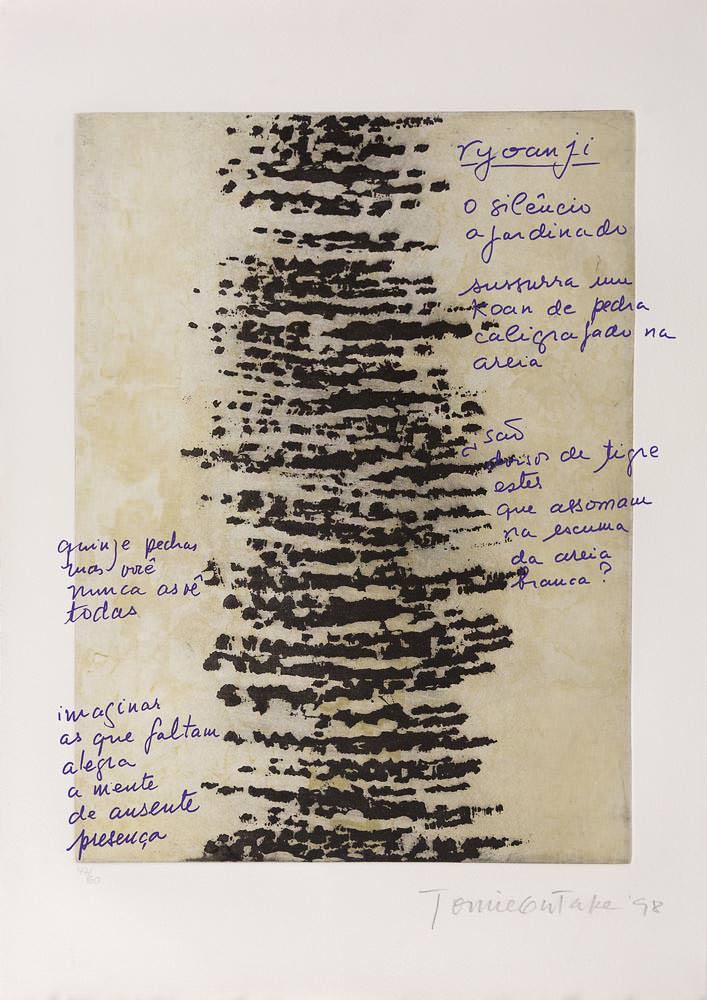 ryoanji
o silêncio
ajardinado
sussurra um
koan de pedra
caligrafado na
areia
¿são
dorsos de tigre
estes
que assomam
na escuma
da areia
branca?
quinze pedras
mas você
nunca as vê
todas
imaginar
as que faltam
alegra
a mente
de ausente
presença
60
Tomie Ohtake '98